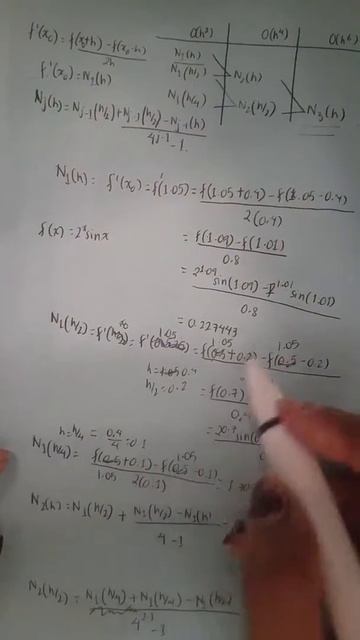 f'(x₀) = f(x₀+h) - f(x₀-h) / 2h
O(h²) O(h⁴) O(h⁶)
f'(x₀) = N₁(h)
N₁(h)
N₁(h/2) N₂(h)
N₁(h/4) N₂(h/2) N₃(h)
Nj(h) = Nj-1(h/2) + Nj-1(h/2) - Nj-1(h) / 4^j-1 - 1
N₁(h) = f'(x₀) = f'(1.05) = f(1.05+0.4) - f(1.05-0.4) / 2(0.4)
f(x) = 2ˣ sinx
= f(1.09) - f(1.01) / 0.8
= 2^1.09 sin(1.09) - 2^1.01 sin(1.01) / 0.8
= 0.227443
N₁(h/2) = f'(x₀) = f'(1.05) = f(1.05+0.2) - f(1.05-0.2)
h = 0.4
h/2 = 0.2
= f(0.7)
h = h/4 = 0.4/4 = 0.1
N₁(h/4) = f(1.05+0.1) - f(1.05-0.1) / 2(0.1)
N₂(h) = N₁(h/2) + N₁(h/2) - N₁(h) / 4-1
N₂(h/2) = N₁(h/4) + N₁(h/4) - N₁(h/2) / 4^2-1 - 1